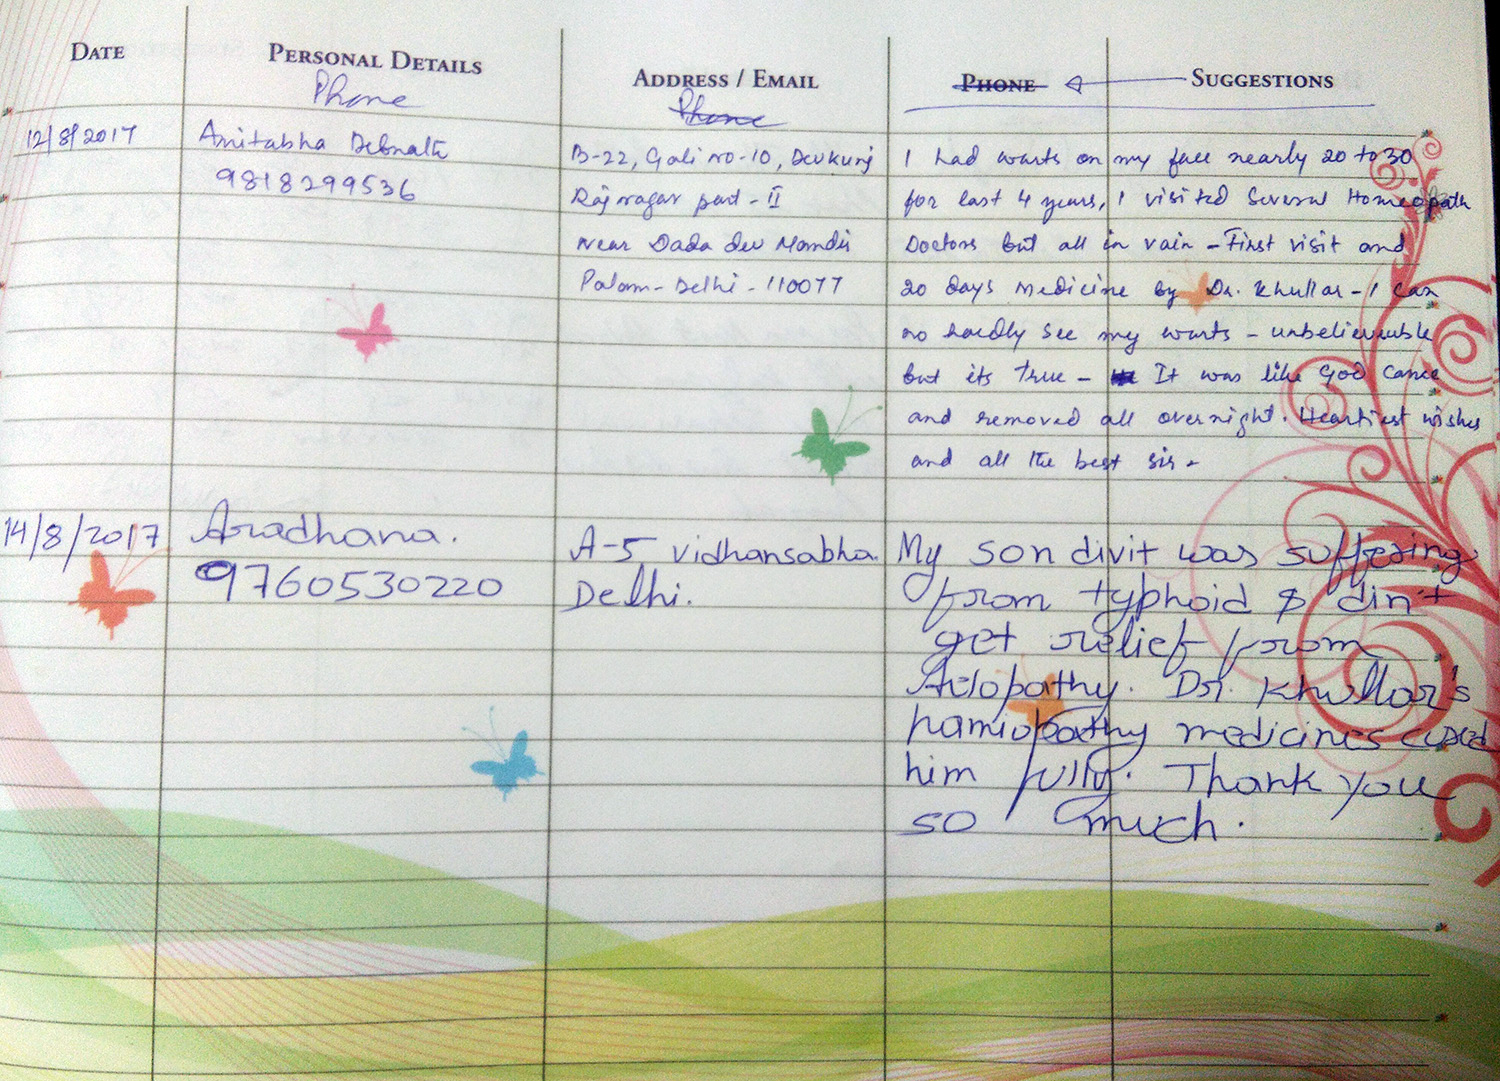 DATE
PERSONAL DETAILS
ADDRESS / EMAIL
PHONE
SUGGESTIONS
Phone
Phone
12/8/2017
Amitabha Debnath
9818299536
B-22, Gali no-10, Devkunj
Rajnagar part-II
Near Dada dev Mandir
Palam-Delhi-110077
I had warts on my face nearly 20 to 30
for last 4 years, I visited Several Homeopath
Doctors but all in vain - First visit and
20 days medicine by Dr. Khullar - I can
no hardly see my warts - unbelieveable
but its true - It was like God came
and removed all overnight. Heartiest wishes
and all the best sir -
14/8/2017
Aradhana.
9760530220
A-5 vidhansabha
Delhi.
My son divit was suffering
from typhoid & din't
get relief from
Allopathy. Dr. Khullar's
hamiopathy medicines cured
him fully. Thank you
so much.